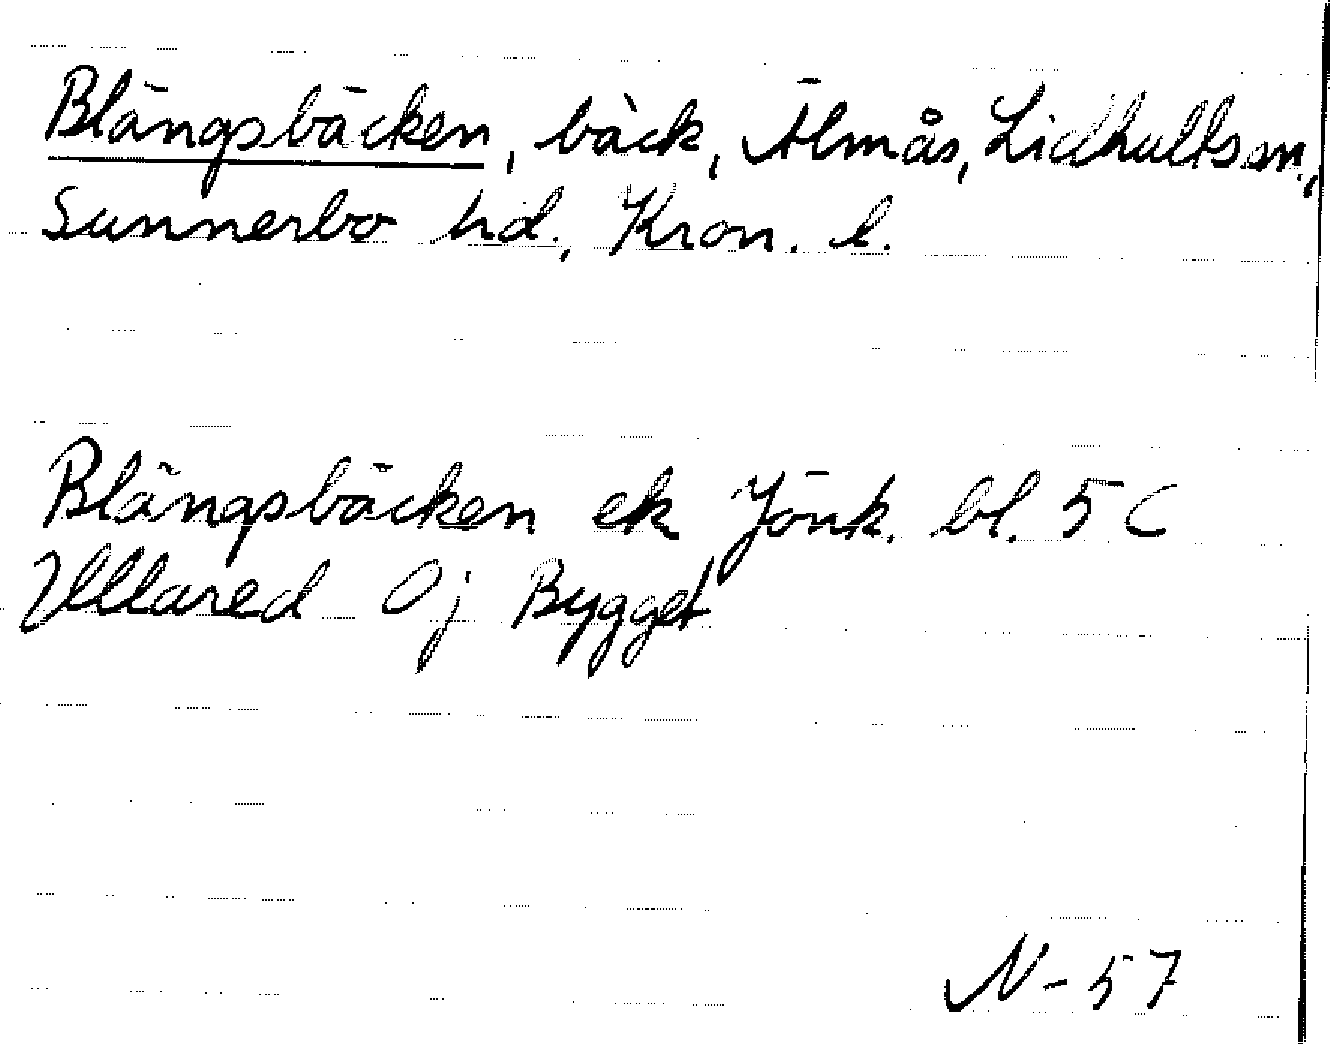 Blängsbäcken, bäck, Älmås, Lidhults sn.,
Sunnerbo hd., Kron. l.
Blängsbäcken ek Jönk. bl. 5 C
Ullared Oj Bygget
N-57